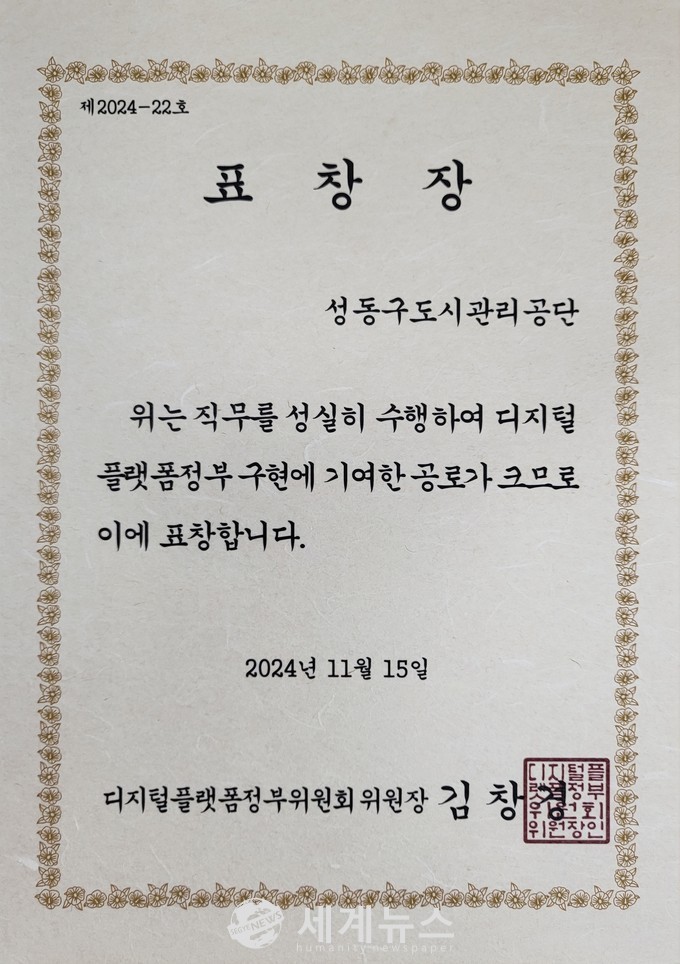 제2024-22호
표 창 장
성동구도시관리공단
위는 직무를 성실히 수행하여 디지털
플랫폼정부 구현에 기여한 공로가 크므로
이에 표창합니다.
2024년 11월 15일
디지털플랫폼정부위원회위원장 김창경
디지털플
랫폼정부
위원회
위원장인
SEGYE NEWS
세계뉴스
humanity newspaper